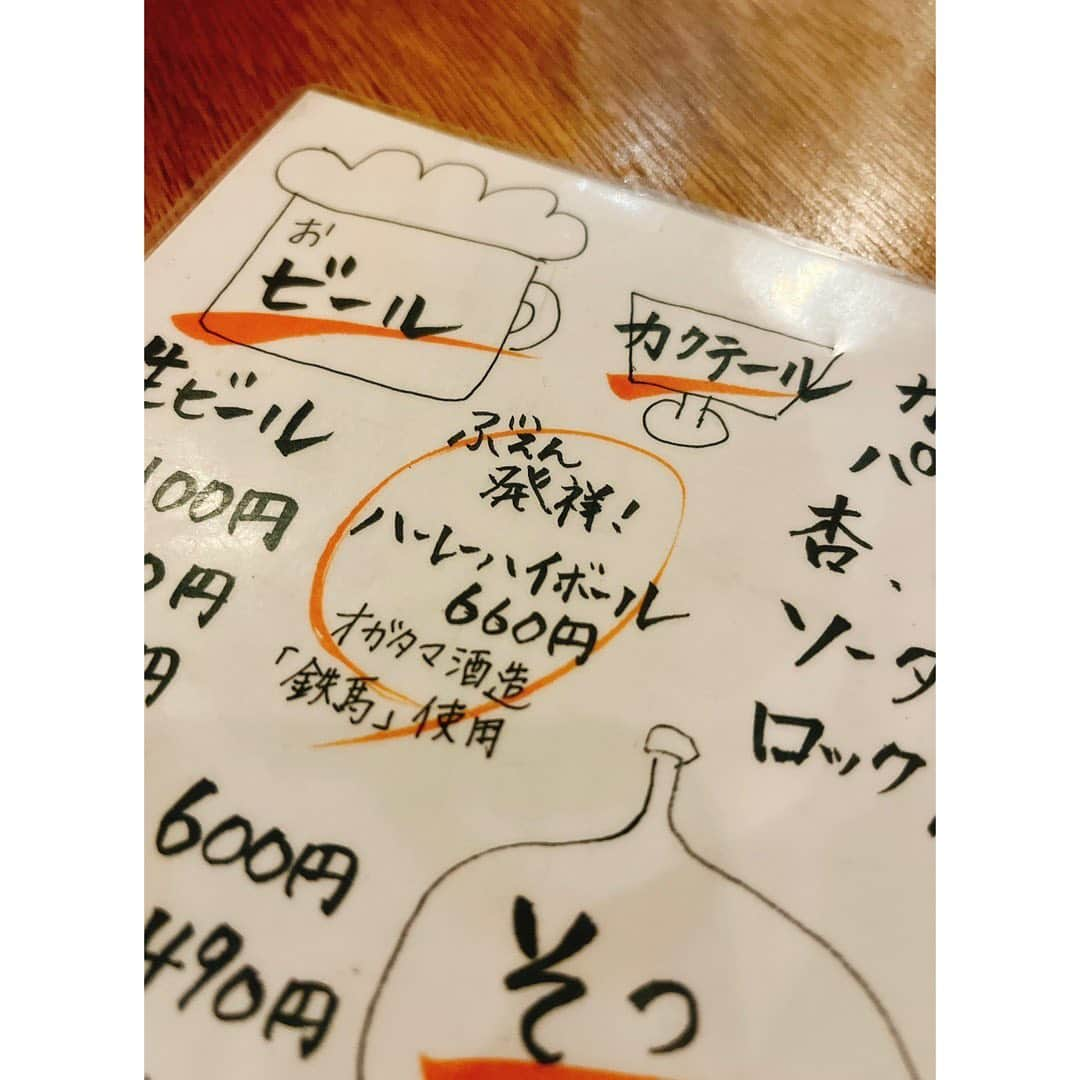 お
ビール
カクテール
生ビール
100円
0円
円
600円
490円
ぶえん
発祥!
ハーレーハイボール
660円
オガタマ酒造
「鉄馬」使用
杏、
ソータ
ロック
そつ